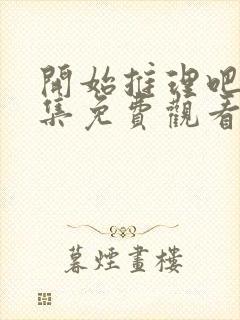 開始推理吧
集免費觀看
暮煙畫樓